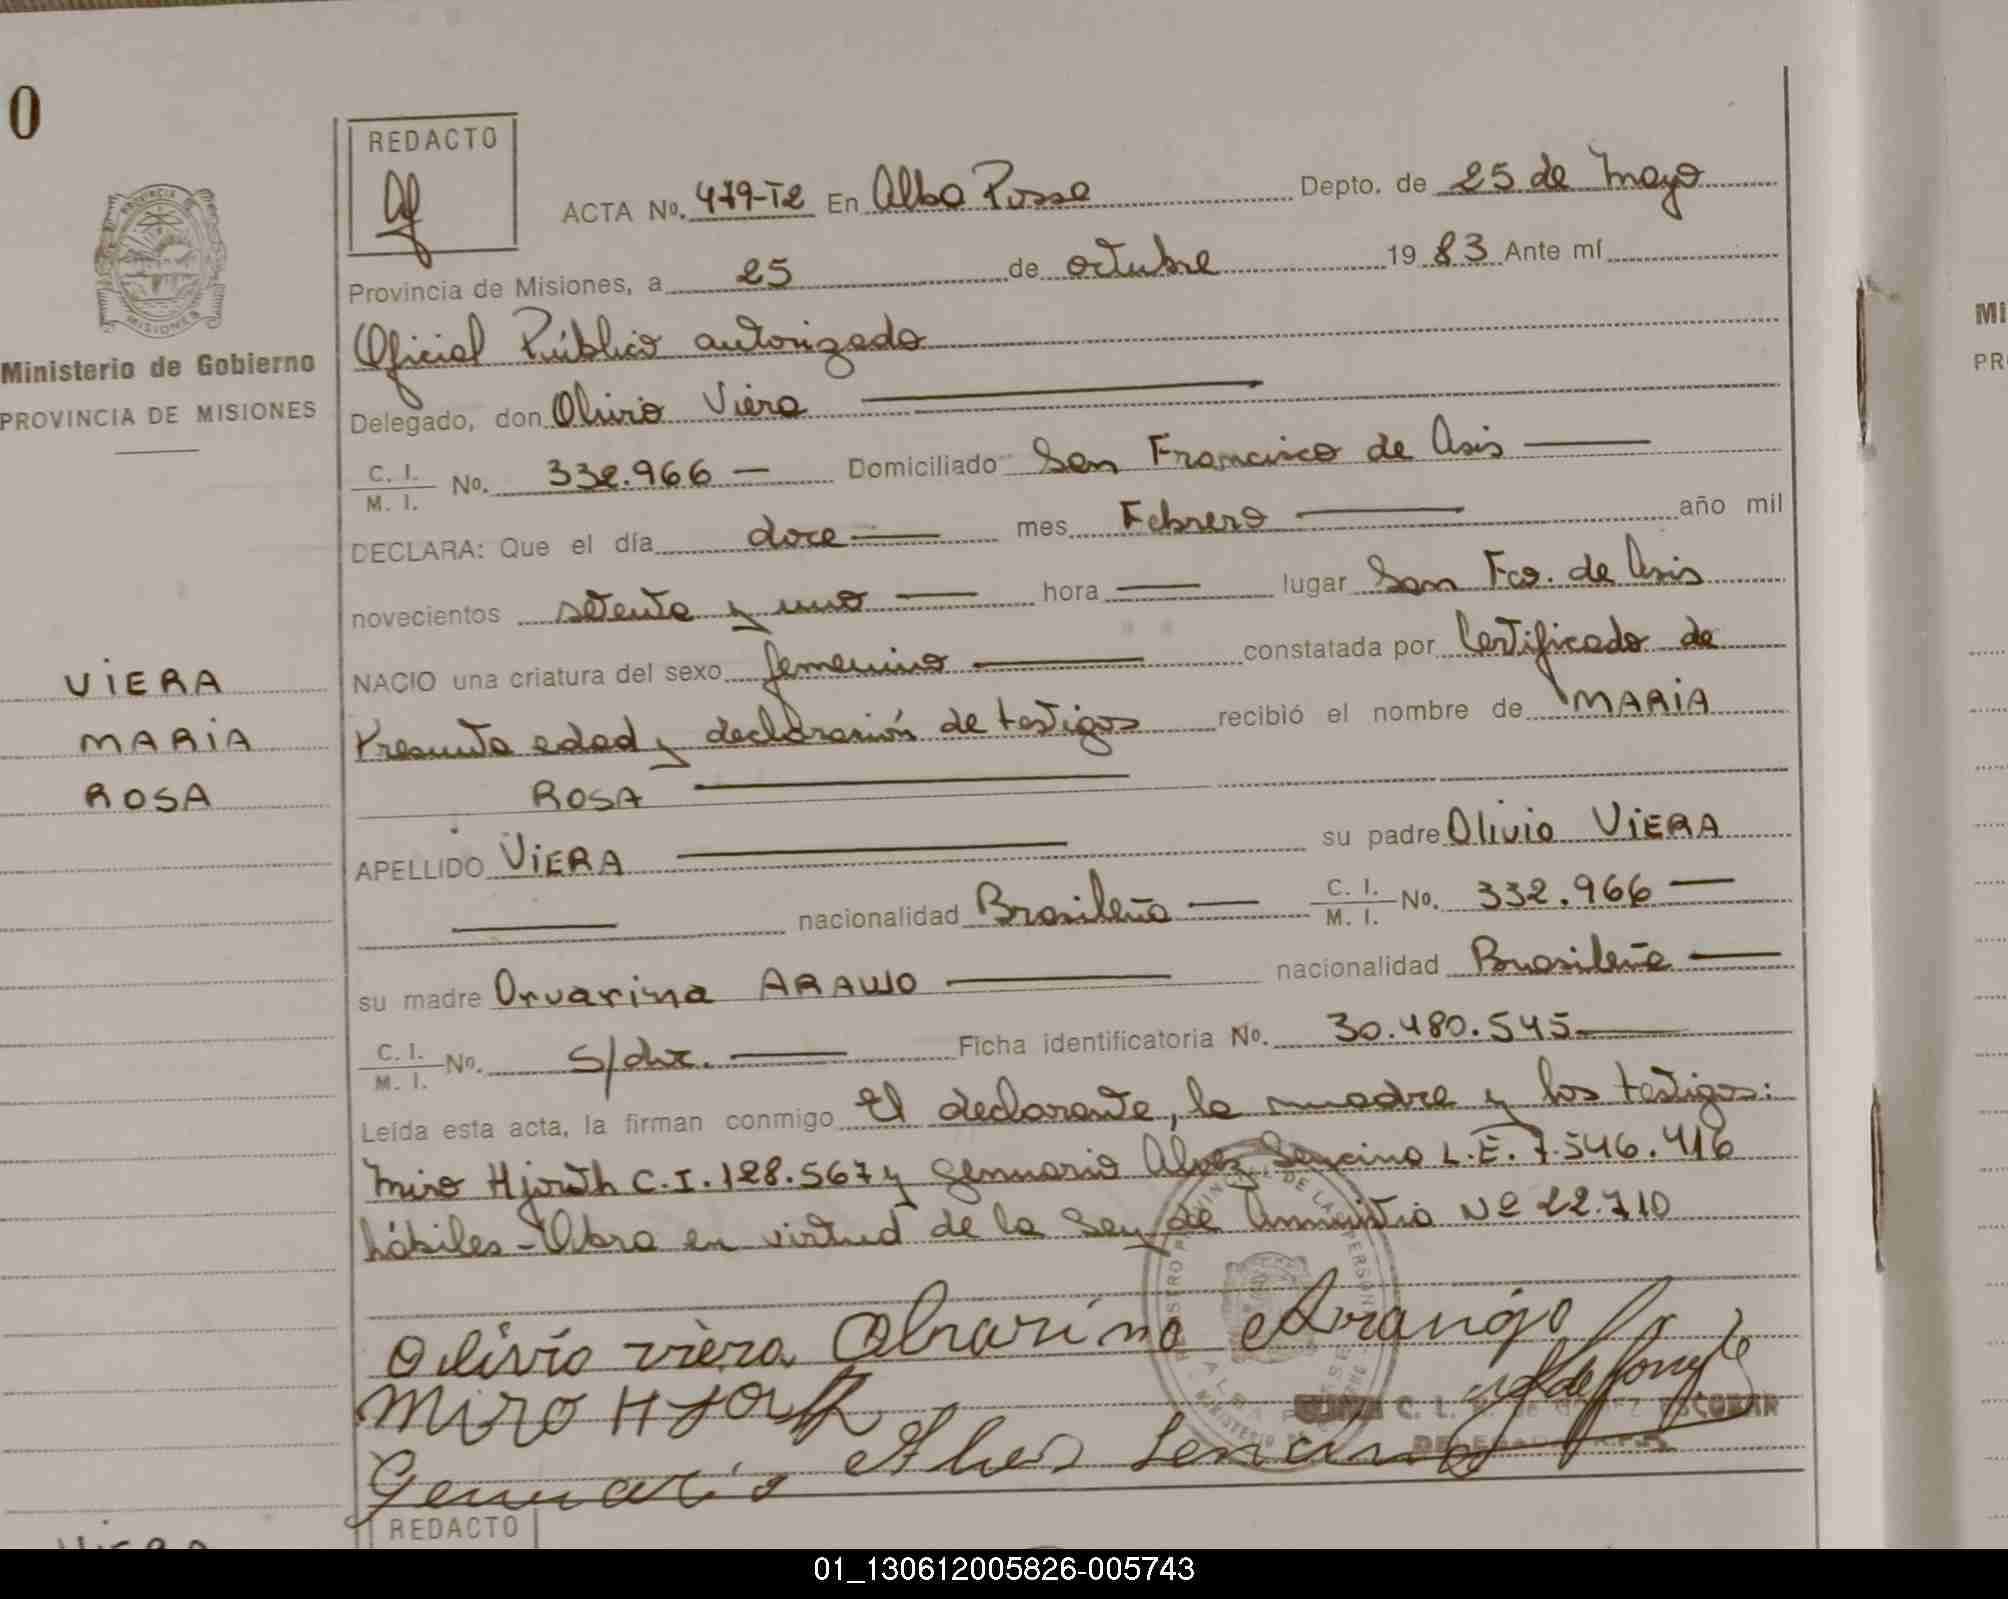 0
REDACTO
ACTA No. 479-T2 En Alba Posse Depto. de 25 de Mayo
Provincia de Misiones, a 25 de octubre 19 83 Ante mí
Oficial Público autorizado
Ministerio de Gobierno
PROVINCIA DE MISIONES
Delegado, don Olivio Viera
C. I. / M. I. No. 332.966 — Domiciliado San Francisco de Asis —
DECLARA: Que el día doce — mes Febrero — año mil
novecientos setenta y uno — hora — lugar San Fco. de Asis
NACIO una criatura del sexo femenino — constatada por Certificado de
Presunta edad y declarasión de testigos recibió el nombre de MARiA
ROSA —
VIERA
MARiA
ROSA
APELLIDO ViERA — su padre Olivio ViERA
— nacionalidad Brasileña — C. I. / M. I. No. 332.966 —
su madre Orvarina ARAUJO — nacionalidad Brasileña —
C. I. / M. I. No. S/doc. — Ficha identificatoria No. 30.480.545 —
Leída esta acta, la firman conmigo El declarante, la madre y los testigos:
Miro Hjorth C.I. 128.567 y Genuario Alvez Sencino L.E. 7.546.416
hábiles - Labra en virtud de la Ley de Amnistia Nº 22.710
Olivio viera
Miro Hjorth
Genuario Alves
C. I. ESCOBAR
REDACTO
MI
PR
01_130612005826-005743